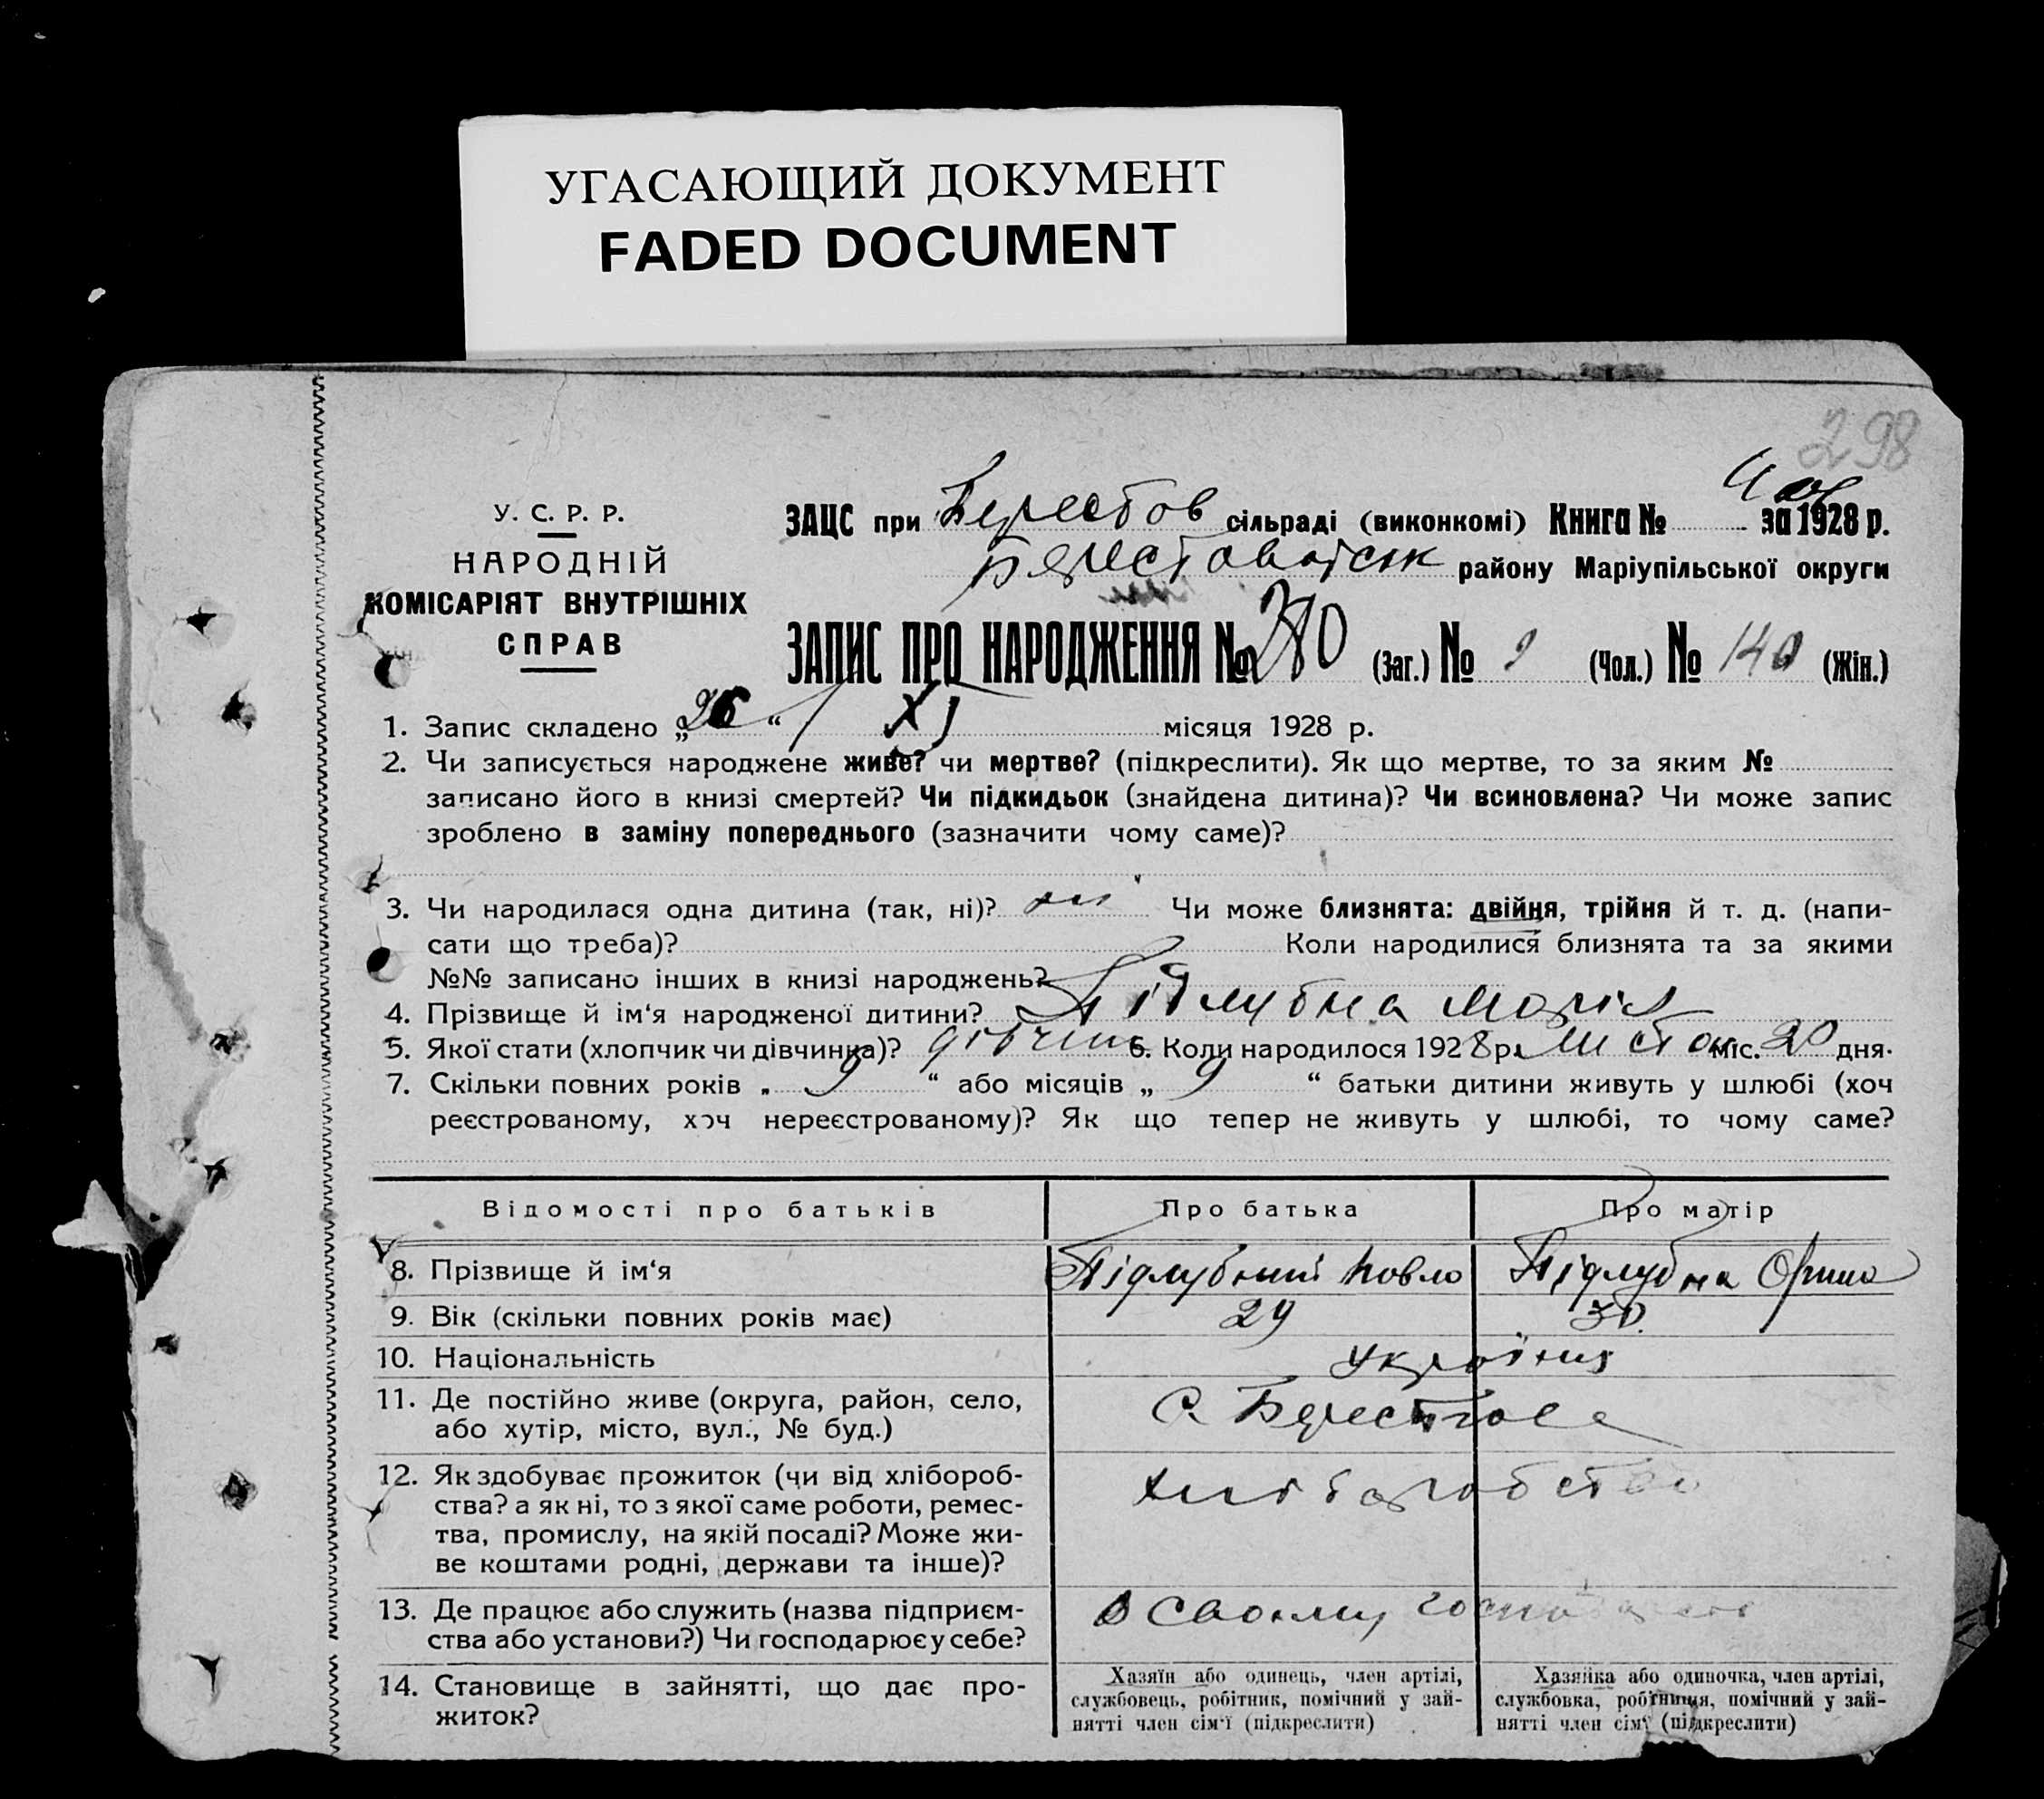 УГАСАЮЩИЙ ДОКУМЕНТ
FADED DOCUMENT
298
У. С. Р. Р.
НАРОДНІЙ
КОМІСАРІЯТ ВНУТРІШНІХ
СПРАВ
ЗАЦС при Берестов сільраді (виконкомі) Книга № за 1928 р.
Берестоватськ району Маріупільської округи
ЗАПИС ПРО НАРОДЖЕННЯ № (Заг.) № (Чол.) № 140 (Жін.)
1. Запис складено „26“ XI місяця 1928 р.
2. Чи записується народжене живе? чи мертве? (підкреслити). Як що мертве, то за яким №
записано його в книзі смертей? Чи підкидьок (знайдена дитина)? Чи всиновлена? Чи може запис
зроблено в заміну попереднього (зазначити чому саме)?
3. Чи народилася одна дитина (так, ні)? ні Чи може близнята: двійня, трійня й т. д. (напи-
сати що треба)? Коли народилися близнята та за якими
№№ записано інших в книзі народжень?
4. Прізвище й ім‘я народженої дитини? Підлубна Марія
5. Якої стати (хлопчик чи дівчинка)? дівчин 6. Коли народилося 1928 р. листоп міс. 20 дня.
7. Скільки повних років „ 9 “ або місяців „ 9 “ батьки дитини живуть у шлюбі (хоч
реєстрованому, хоч нереєстрованому)? Як що тепер не живуть у шлюбі, то чому саме?
Відомості про батьків Про батька Про матір
8. Прізвище й ім‘я Підлубний Павло Підлубна Орина
9. Вік (скільки повних років має) 29 30.
10. Національність Україніц
11. Де постійно живе (округа, район, село,
або хутір, місто, вул., № буд.) С. Берестове
12. Як здобуває прожиток (чи від хлібороб-
ства? а як ні, то з якої саме роботи, ремес-
тва, промислу, на якій посаді? Може жи-
ве коштами родні, держави та інше)? хліборобство
13. Де працює або служить (назва підприєм-
ства або установи?) Чи господарює у себе? В своєму
14. Становище в зайнятті, що дає про-
житок?
Хазяїн або одинець, член артілі,
службовець, робітник, помічний у зай-
нятті член сім‘ї (підкреслити)
Хазяйка або одиночка, член артілі,
службовка, робітниця, помічний у зай-
нятті член сім‘ї (підкреслити)